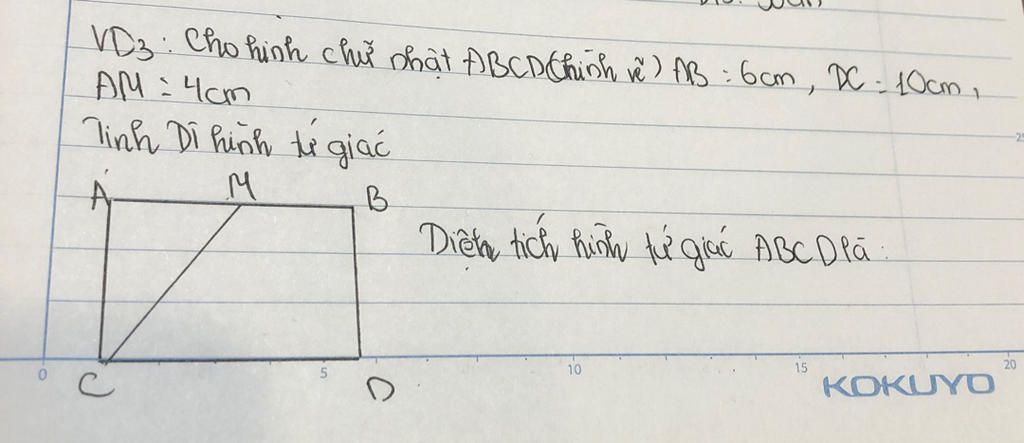 VD3: Cho hình chữ nhật ABCD (hình vẽ) AB = 6cm, DC = 10cm,
AM = 4cm
Tính DT hình tứ giác
A M B
Diện tích hình tứ giác ABCD là:
C D
0 5 10 15 20
KOKUYO